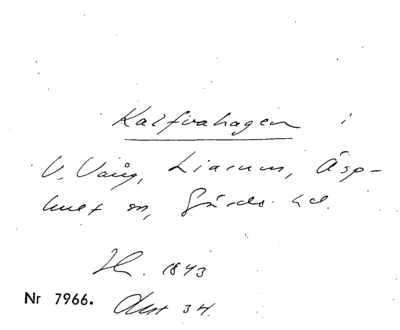 Kalfvahagen i
V. Vång, Liarum, Äsp-
huet sn, Gärds hd.
H. 1843
Nr 7966. Aust 34.